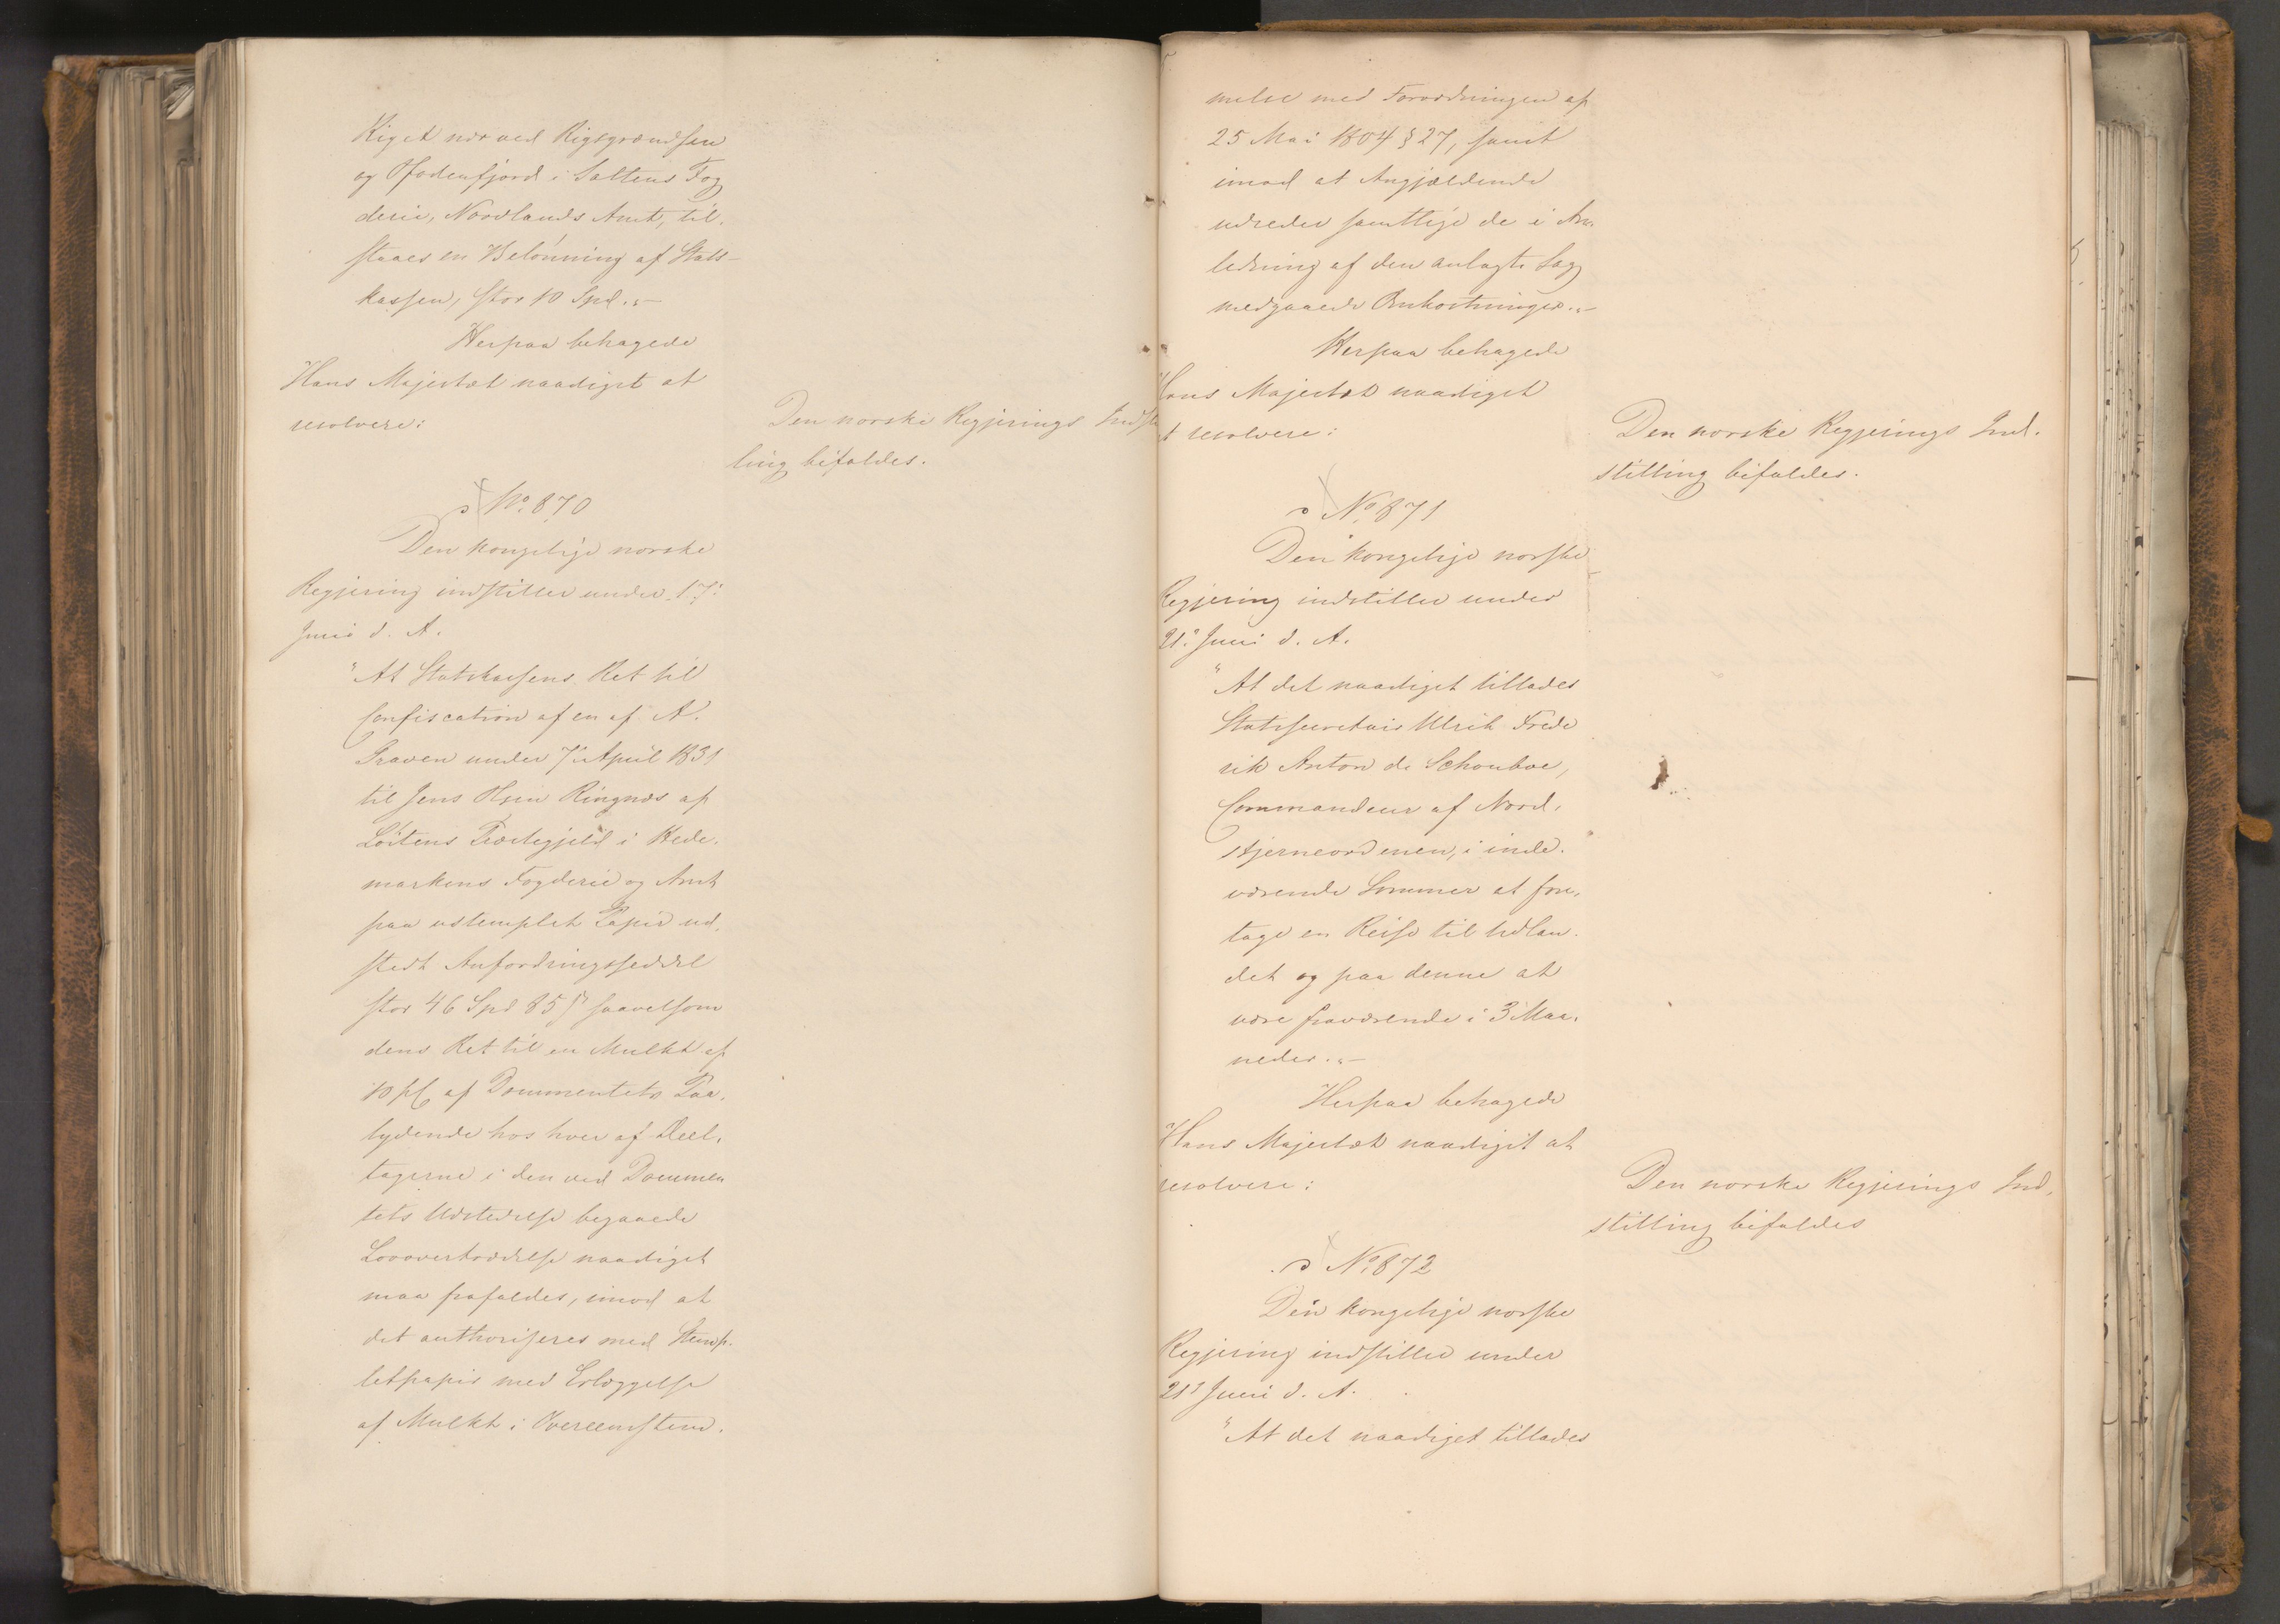 Riget nær ved Rigsgrændsen
og Ofodenfjord i Saltens Fog
derie, Nordlands Amt, til-
staaes en Belønning af Stats-
kassen, stor 10 Spd.„-
Herpaa behagede
Hans Majestæt naadigst at
resolvere:
Den norske Regjerings Indstil
ling bifaldes.
No 870
Den kongelige norske
Regjering indstiller under 17:
Juni d. A.
"At Statskassens Ret til
Confiscation af en af A.
Graven under 7de April 1831
til Jens Ringnæs af
Løitens Præstegjeld i Hede-
markens Fogderie og Amt
paa ustemplet Papir ud-
stedt Anfordringsseddel
stor 46 Spd 85 s saavelsom
dens Ret til en Mulkt af
10 pC af Documentets Paa-
lydende hos hver af Deel-
tagerne i den ved Documen
tets Udstedelse begaaede
Lovovertrædelse naadigst
maa frafaldes, imod at
det authoriseres med Stemp-
letpapir med Erlæggelse
af Mulkt i Overeensstem-
melse med Forordningen af
25 Mai 1804 § 27, samt
imod at Angjældende
udreder samtlige de i An-
ledning af den anlagte Sag
medgaaede Omkostninger.„-
Herpaa behagede
Hans Majestæt naadigst
at resolvere:
Den norske Regjerings Ind-
stilling bifaldes.
No 871
Den kongelige norske
Regjering indstiller under
21: Juni d. A.
"At det naadigst tillades
Statssecretair Ulrik Frede
rik Anton de Schouboe,
Commandeur af Nord-
stjerneordenen, i inde-
værende Sommer at fore-
tage en Reise til Udlan-
det og paa denne at
være fraværende i 3 Maa-
neder.„-
Herpaa behagede
Hans Majestæt naadigst at
resolvere:
Den norske Regjerings Ind-
stilling bifaldes
No 872
Den kongelige norske
Regjering indstiller under
21: Juni d. A.
"At det naadigst tillades